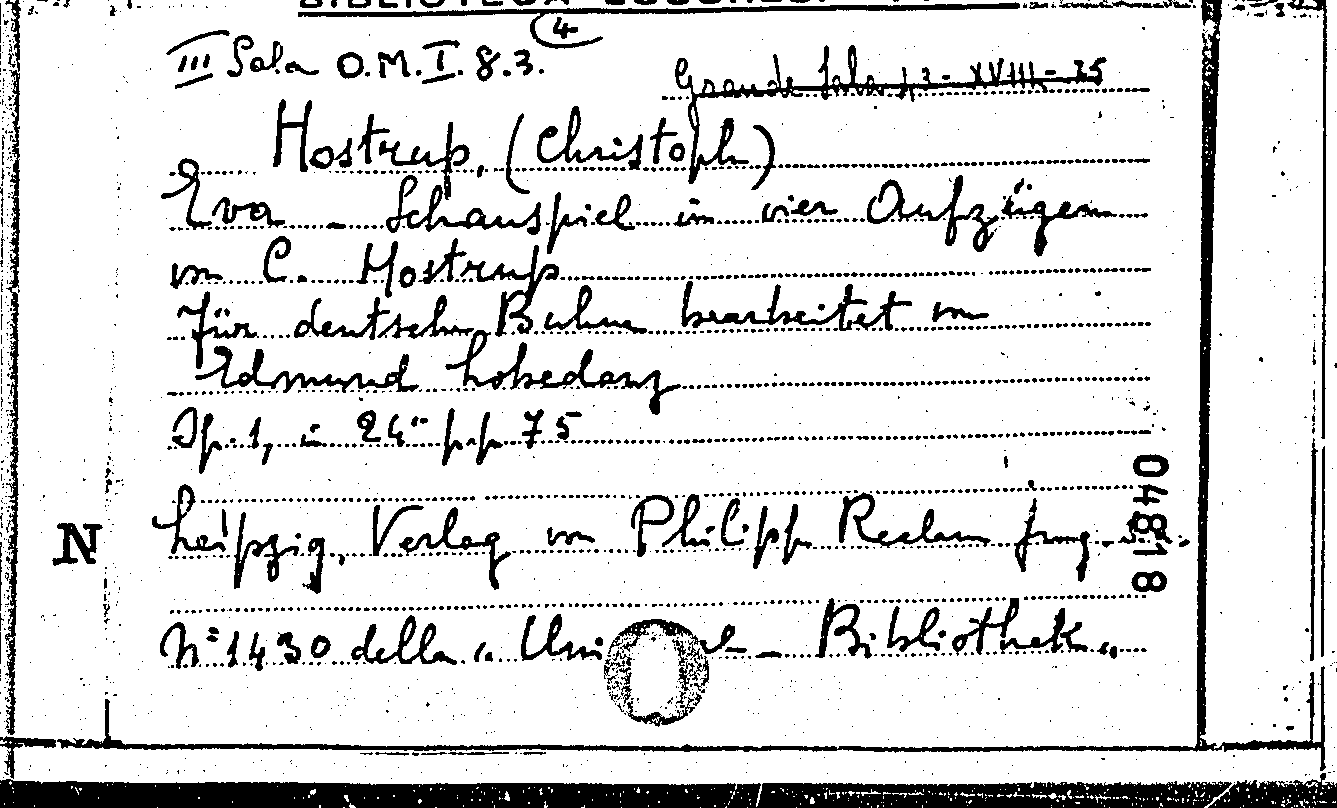 III Sala O.M.I.8.3.(4)
Grande Sala 43-XVIII-35
Hostrup, (Christoph)
Eva - Schauspiel in vier Aufzügen
von C. Hostrup
für deutsche Buhne bearbeitet von
Edmund Lobedanz
Sp. 1, in 24° p.p. 75
Leipzig, Verlag von Philipp Reclam jung.
04818
N
N° 1430 della "Uni - Bibliothek"